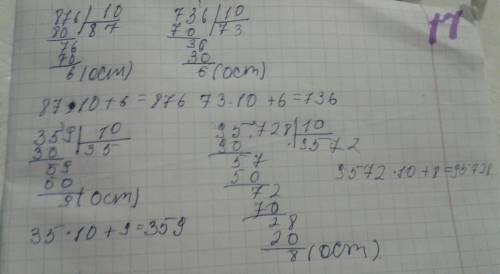 17
876 | 10
80 | 87
76
70
6 (ост)
736 | 10
70 | 73
36
30
6 (ост)
87·10+6=876 73·10+6=736
359 | 10
30 | 35
59
50
9 (ост)
35·10+9=359
95.728 | 10
90 | 9572
57
50
72
70
28
20
8 (ост)
9572·10+8=95728